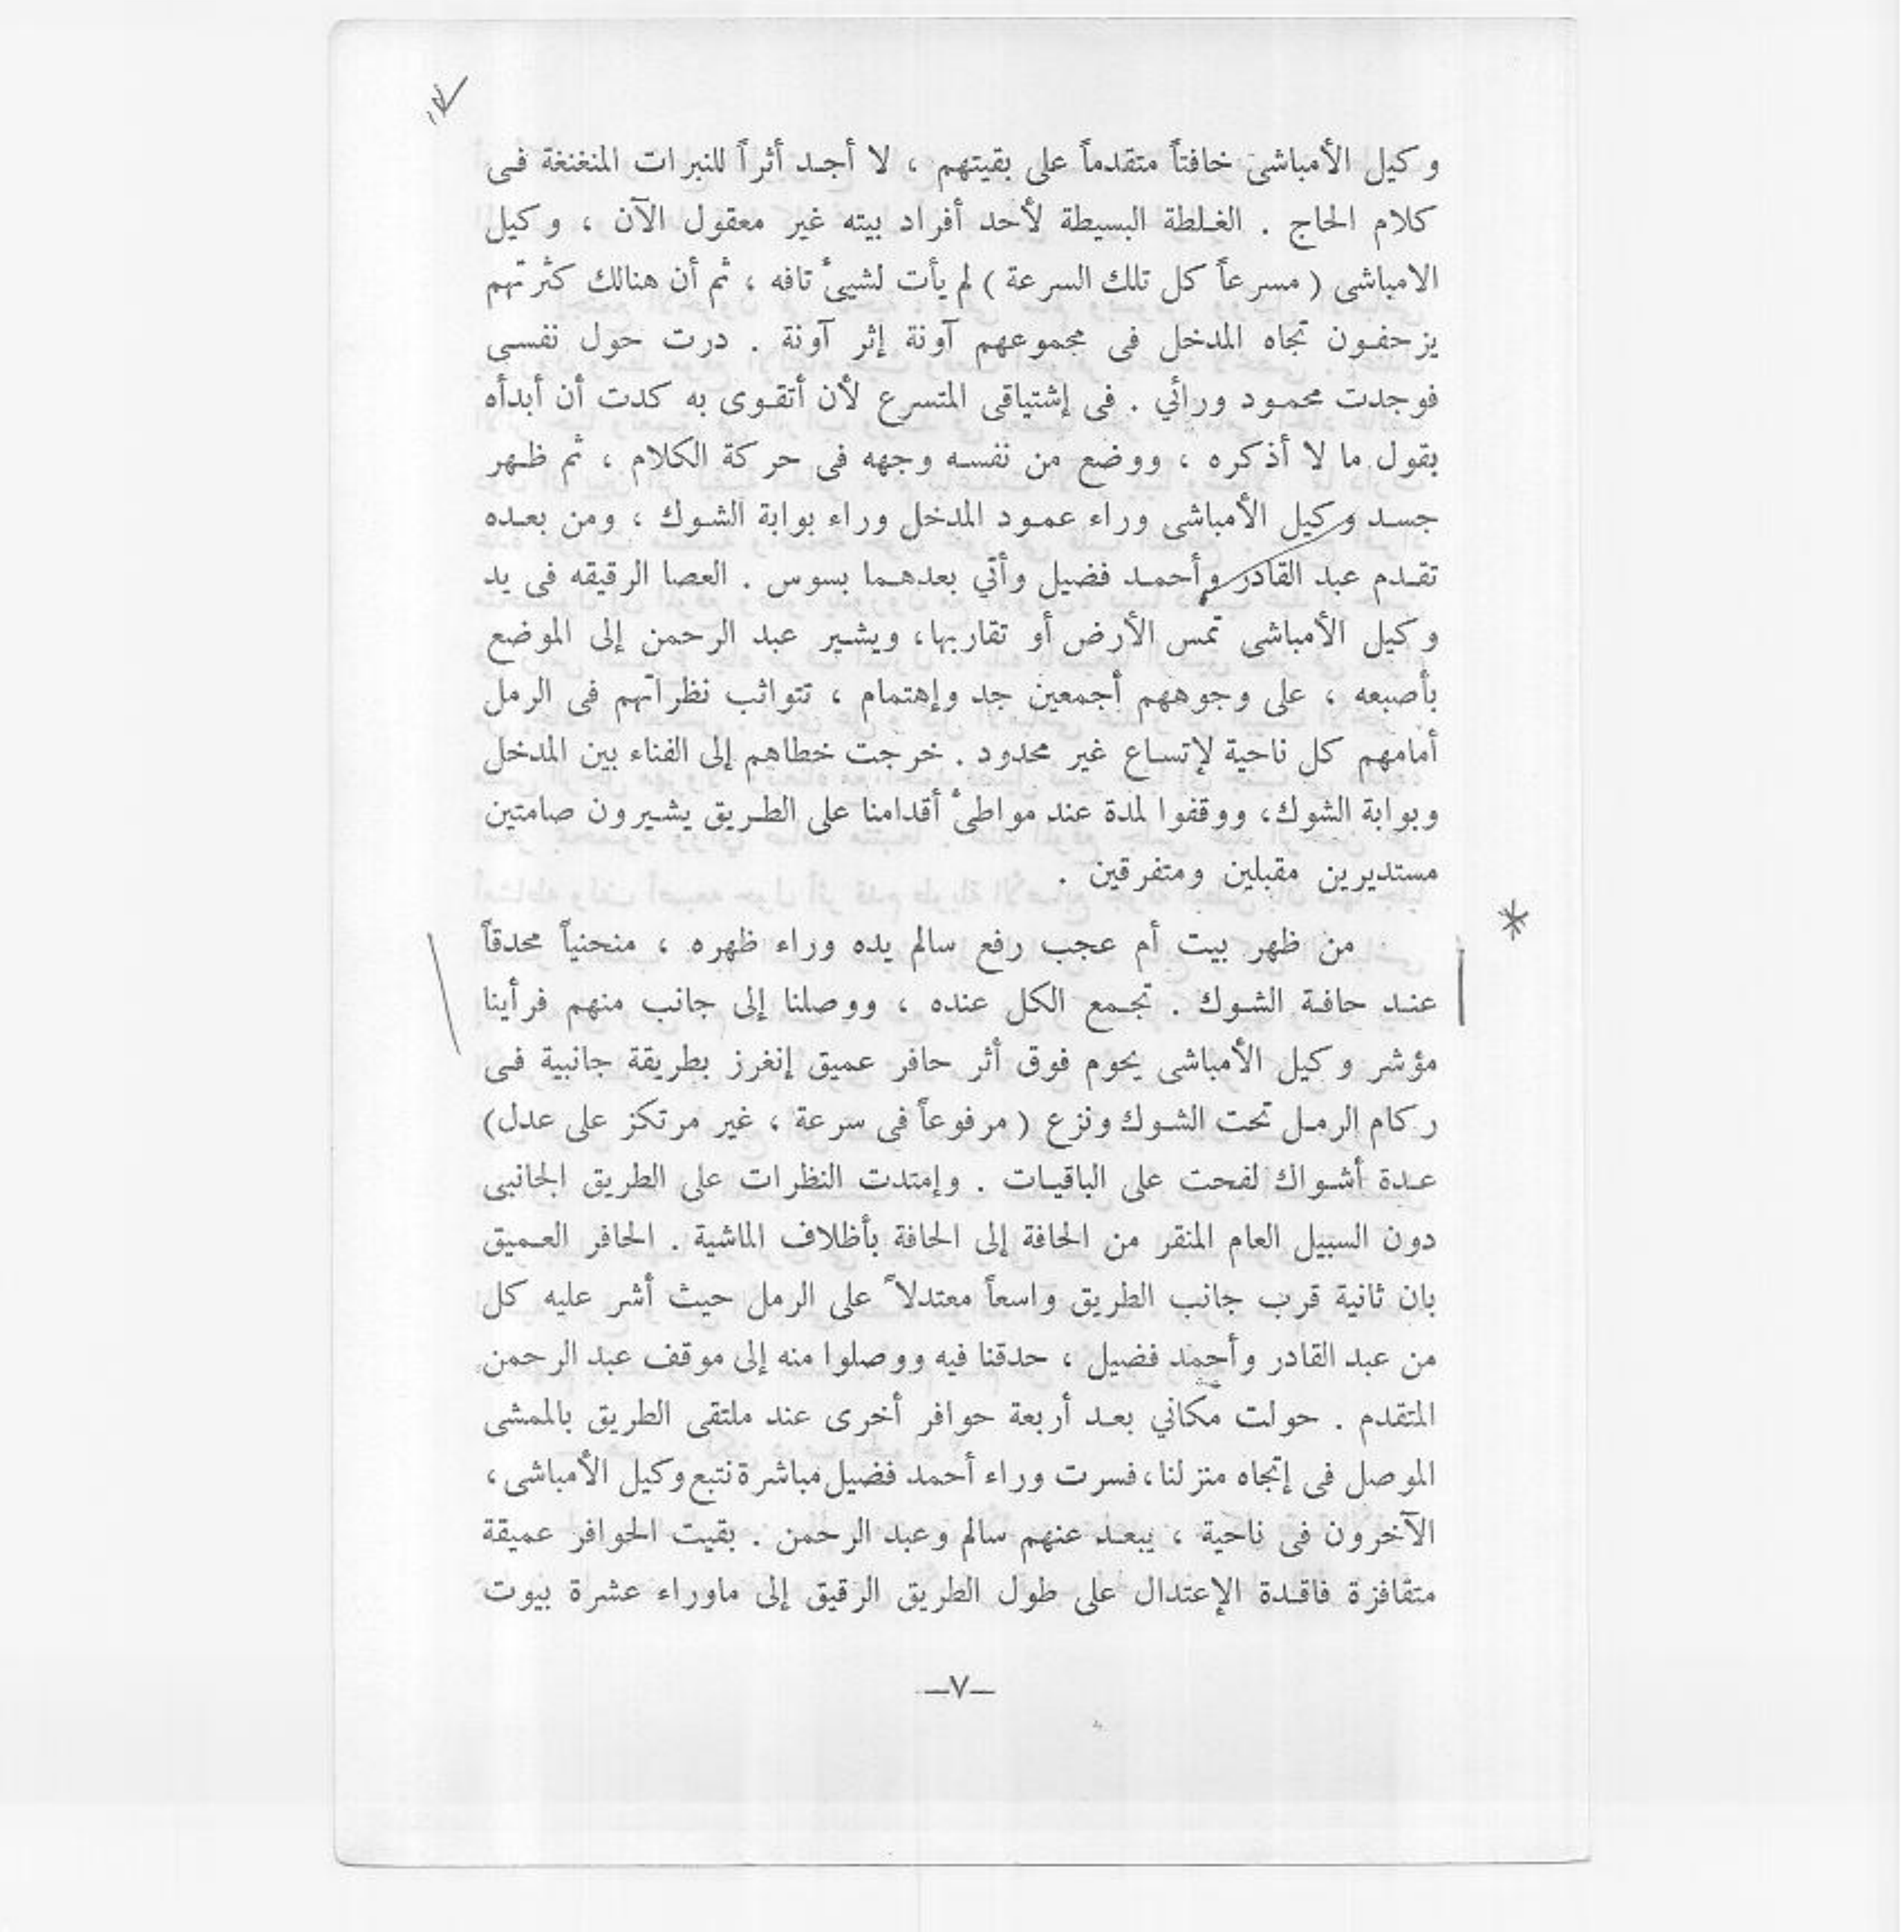 وكيل الأمباشى خافتاً متقدماً على بقيتهم ، لا أجد أثراً للنبرات المنغنغة فى
كلام الحاج . الغلطة البسيطة لأحد أفراد بيته غير معقول الآن ، وكيل
الامباشى ( مسرعاً كل تلك السرعة ) لم يأت لشيئ تافه ، ثم أن هنالك كثرتهم
يزحفون تجاه المدخل فى مجموعهم آونة إثر آونة . درت حول نفسى
فوجدت محمود ورائي . فى إشتياقى المتسرع لأن أتقوى به كدت أن أبدأه
بقول ما لا أذكره ، ووضع من نفسه وجهه فى حركة الكلام ، ثم ظهر
جسد وكيل الأمباشى وراء عمود المدخل وراء بوابة الشوك ، ومن بعده
تقدم عبد القادر وأحمد فضيل وأتي بعدهما بسوس . العصا الرقيقه فى يد
وكيل الأمباشى تمس الأرض أو تقاربها، ويشير عبد الرحمن إلى الموضع
بأصبعه ، على وجوههم أجمعين جد وإهتمام ، تتواثب نظراتهم فى الرمل
أمامهم كل ناحية لإتساع غير محدود . خرجت خطاهم إلى الفناء بين المدخل
وبوابة الشوك، ووقفوا لمدة عند مواطئ أقدامنا على الطريق يشيرون صامتين
مستديرين مقبلين ومتفرقين .
من ظهر بيت أم عجب رفع سالم يده وراء ظهره ، منحنياً محدقاً
عند حافة الشوك . تجمع الكل عنده ، ووصلنا إلى جانب منهم فرأينا
مؤشر وكيل الأمباشى يحوم فوق أثر حافر عميق إنغرز بطريقة جانبية فى
ركام الرمل تحت الشوك ونزع ( مرفوعاً فى سرعة ، غير مرتكز على عدل)
عدة أشواك لفحت على الباقيات . وإمتدت النظرات على الطريق الجانبى
دون السبيل العام المنقر من الحافة إلى الحافة بأظلاف الماشية . الحافر العميق
بان ثانية قرب جانب الطريق واسعاً معتدلاً على الرمل حيث أشر عليه كل
من عبد القادر وأحمد فضيل ، حدقنا فيه ووصلوا منه إلى موقف عبد الرحمن
المتقدم . حولت مكاني بعد أربعة حوافر أخرى عند ملتقى الطريق بالممشى
الموصل فى إتجاه منزلنا، فسرت وراء أحمد فضيل مباشرة نتبع وكيل الأمباشى،
الآخرون فى ناحية ، يبعد عنهم سالم وعبد الرحمن . بقيت الحوافر عميقة
متقافزة فاقدة الإعتدال على طول الطريق الرقيق إلى ماوراء عشرة بيوت
—٧—